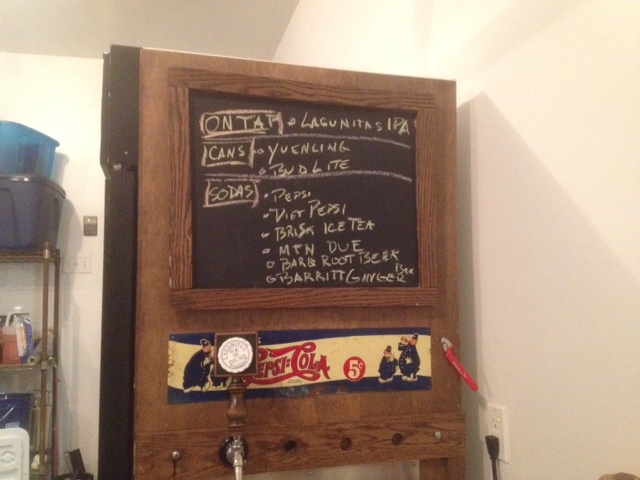 ON TAP • LAGUNITAS IPA
CANS • YUENLING
• BUD LITE
SODAS • PEPSI
• DIET PEPSI
• BRISK ICE TEA
• MTN DUE
• BARQ ROOT BEER
• BARRITT GINGER BEER
PEPSI:COLA 5¢
LAGUNITAS